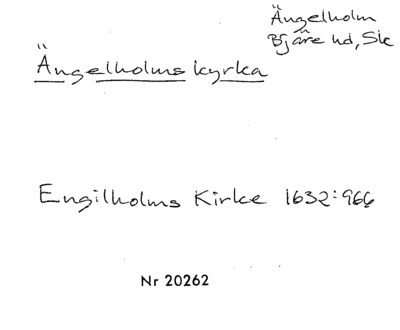 Ängelholm
Bjäre hd, Sk
Ängelholms kyrka
Engilholms Kirke 1632:966
Nr 20262